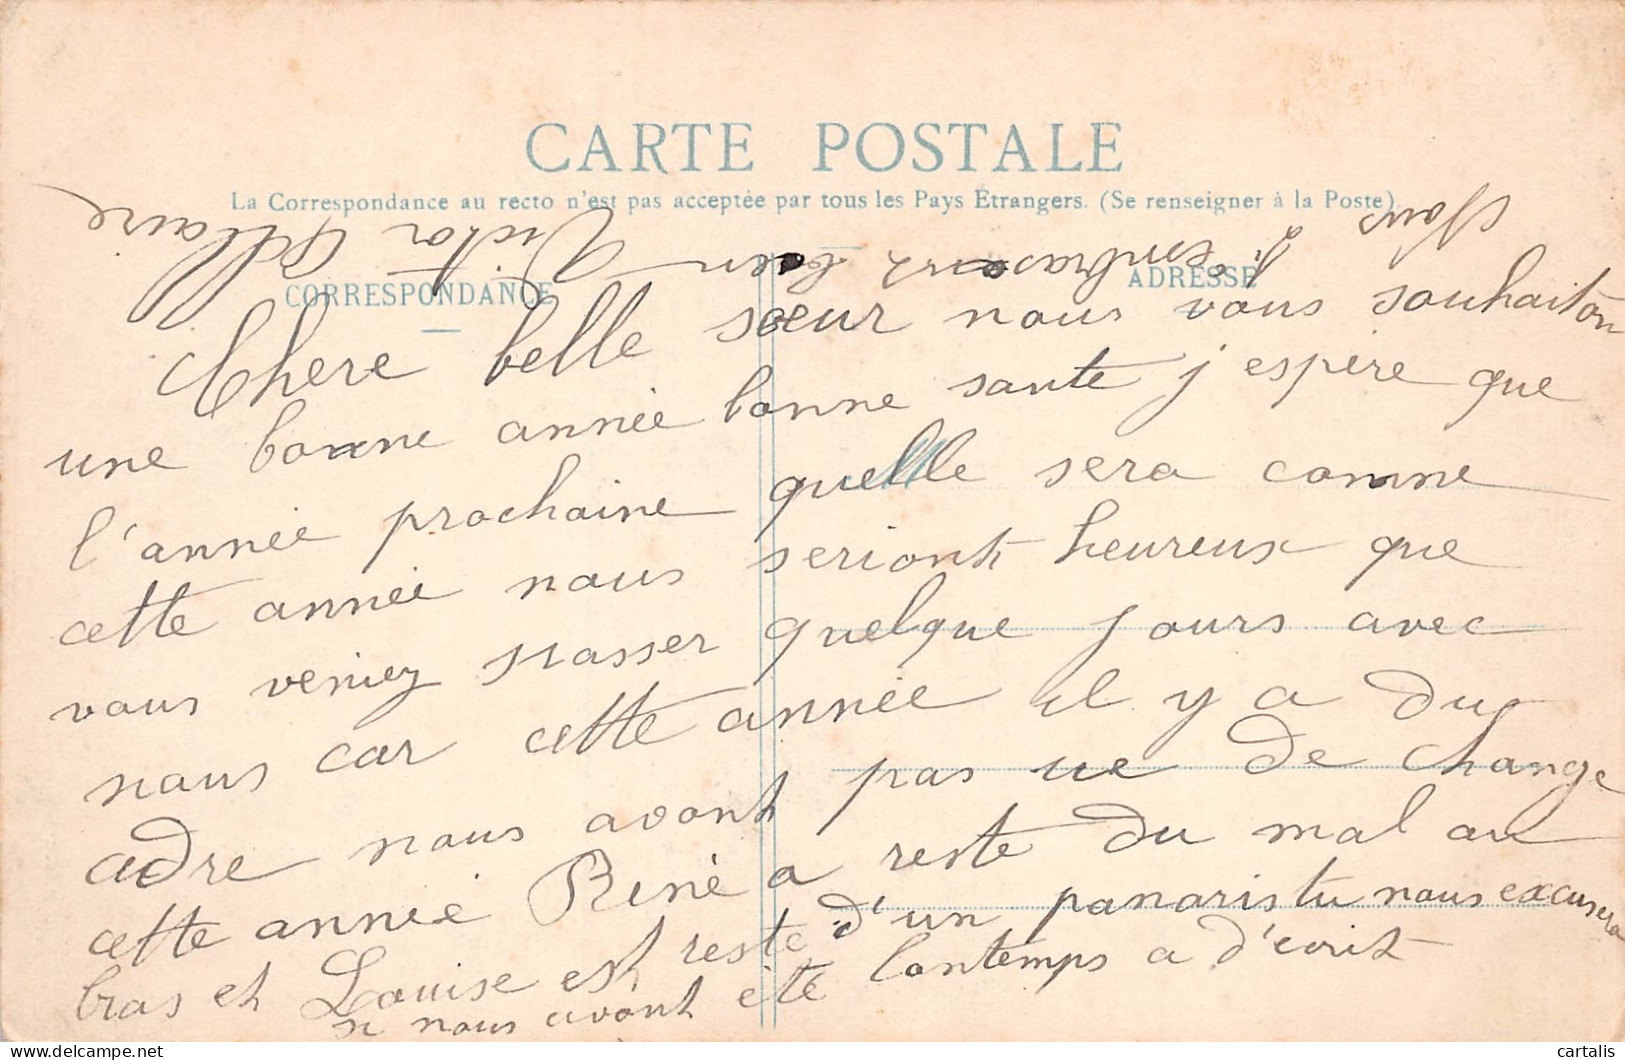 CARTE POSTALE
La Correspondance au recto n'est pas acceptée par tous les Pays Étrangers. (Se renseigner à la Poste)
CORRESPONDANCE
ADRESSE
Chere belle sœur nous vous souhaiton
une bonne année bonne sante j espère que
l'année prochaine quelle sera comme
cette année nous seriont heureux que
vous veniez passer quelque jours avec
nous car cette année il y a du
adre nous avont pas ue de change
cette année René a reste du mal au
bras et Louise est reste d'un panaris tu nous excusera
si nous avont été lontemps a d'ecrit
Nous
t'embrasons bien Victor Hilaire
cartalis